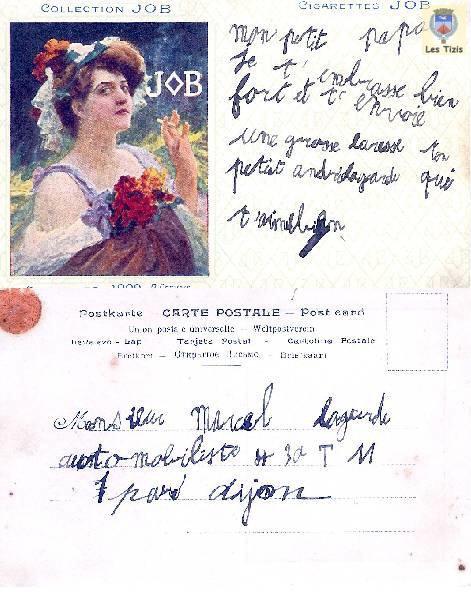 COLLECTION JOB
CIGARETTES JOB
Les Tizis
JOB
mon petit papa
Je t'embrasse bien
fort et t'envoie
une grosse caresse ton
petit andré lagarde qui
t'aime bien
Postkarte CARTE POSTALE – Post card
Union postale universelle – Weltpostverein
Levelező-Lap Tarjeta Postal – Cartolina Postale
Brefkort – Открытое Письмо – Briefkaart
Monsieur Marcel lagarde
automobiliste
dijon